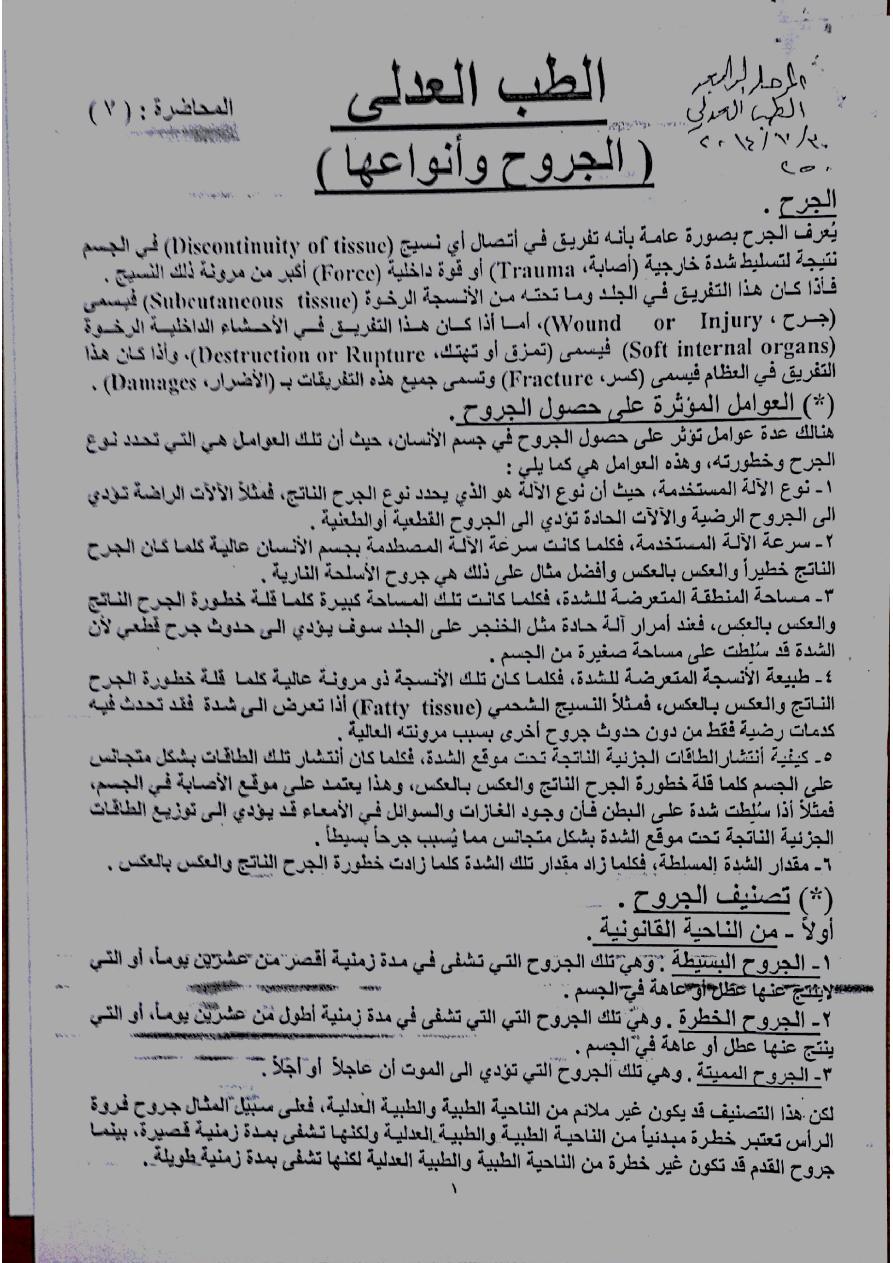 المرحلة الرابعة
الطب العدلي
٢٠١٤/
٢٥٠
الطب العدلي
المحاضرة : (٧)
(الجروح وأنواعها)
الجرح .
يُعرف الجرح بصورة عامة بأنه تفريق في أتصال أي نسيج (Discontinuity of tissue) في الجسم
نتيجة لتسليط شدة خارجية (أصابة، Trauma) أو قوة داخلية (Force) أكبر من مرونة ذلك النسيج .
فأذا كان هذا التفريق في الجلد وما تحته من الأنسجة الرخوة (Subcutaneous tissue) فيسمى
(جرح ، Wound or Injury)، أما أذا كان هذا التفريق في الأحشاء الداخلية الرخوة
(Soft internal organs) فيسمى (تمزق أو تهتك، Destruction or Rupture)، وأذا كان هذا
التفريق في العظام فيسمى (كسر، Fracture) وتسمى جميع هذه التفريقات بـ (الأضرار، Damages) .
(*) العوامل المؤثرة على حصول الجروح .
هنالك عدة عوامل تؤثر على حصول الجروح في جسم الأنسان، حيث أن تلك العوامل هي التي تحدد نوع
الجرح وخطورته، وهذه العوامل هي كما يلي :
١- نوع الآلة المستخدمة، حيث أن نوع الآلة هو الذي يحدد نوع الجرح الناتج، فمثلاً الآلات الراضة تؤدي
الى الجروح الرضية والآلات الحادة تؤدي الى الجروح القطعية أوالطعنية .
٢- سرعة الآلة المستخدمة، فكلما كانت سرعة الآلة المصطدمة بجسم الأنسان عالية كلما كان الجرح
الناتج خطيراً والعكس بالعكس وأفضل مثال على ذلك هي جروح الأسلحة النارية .
٣- مساحة المنطقة المتعرضة للشدة، فكلما كانت تلك المساحة كبيرة كلما قلة خطورة الجرح الناتج
والعكس بالعكس، فعند أمرار آلة حادة مثل الخنجر على الجلد سوف يؤدي الى حدوث جرح قطعي لأن
الشدة قد سُلِطت على مساحة صغيرة من الجسم .
٤- طبيعة الأنسجة المتعرضة للشدة، فكلما كان تلك الأنسجة ذو مرونة عالية كلما قلة خطورة الجرح
الناتج والعكس بالعكس، فمثلاً النسيج الشحمي (Fatty tissue) أذا تعرض الى شدة فقد تحدث فيه
كدمات رضية فقط من دون حدوث جروح أخرى بسبب مرونته العالية .
٥- كيفية أنتشارالطاقات الجزئية الناتجة تحت موقع الشدة، فكلما كان أنتشار تلك الطاقات بشكل متجانس
على الجسم كلما قلة خطورة الجرح الناتج والعكس بالعكس، وهذا يعتمد على موقع الأصابة في الجسم،
فمثلاً أذا سُلِطت شدة على البطن فأن وجود الغازات والسوائل في الأمعاء قد يؤدي الى توزيع الطاقات
الجزئية الناتجة تحت موقع الشدة بشكل متجانس مما يُسبب جرحاً بسيطاً.
٦- مقدار الشدة المسلطة، فكلما زاد مقدار تلك الشدة كلما زادت خطورة الجرح الناتج والعكس بالعكس .
(*) تصنيف الجروح .
أولاً - من الناحية القانونية .
١- الجروح البسيطة . وهي تلك الجروح التي تشفى في مدة زمنية أقصر من عشرين يوماً، أو التي
لاينتج عنها عطل أو عاهة في الجسم .
٢- الجروح الخطرة . وهي تلك الجروح التي التي تشفى في مدة زمنية أطول من عشرين يوماً، أو التي
ينتج عنها عطل أو عاهة في الجسم .
٣- الجروح المميتة . وهي تلك الجروح التي تؤدي الى الموت أن عاجلاً أو أجلاً .
لكن هذا التصنيف قد يكون غير ملائم من الناحية الطبية والطبية العدلية، فعلى سبيل المثال جروح فروة
الرأس تعتبر خطرة مبدئياً من الناحية الطبية والطبية العدلية ولكنها تشفى بمدة زمنية قصيرة، بينما
جروح القدم قد تكون غير خطرة من الناحية الطبية والطبية العدلية لكنها تشفى بمدة زمنية طويلة .
١